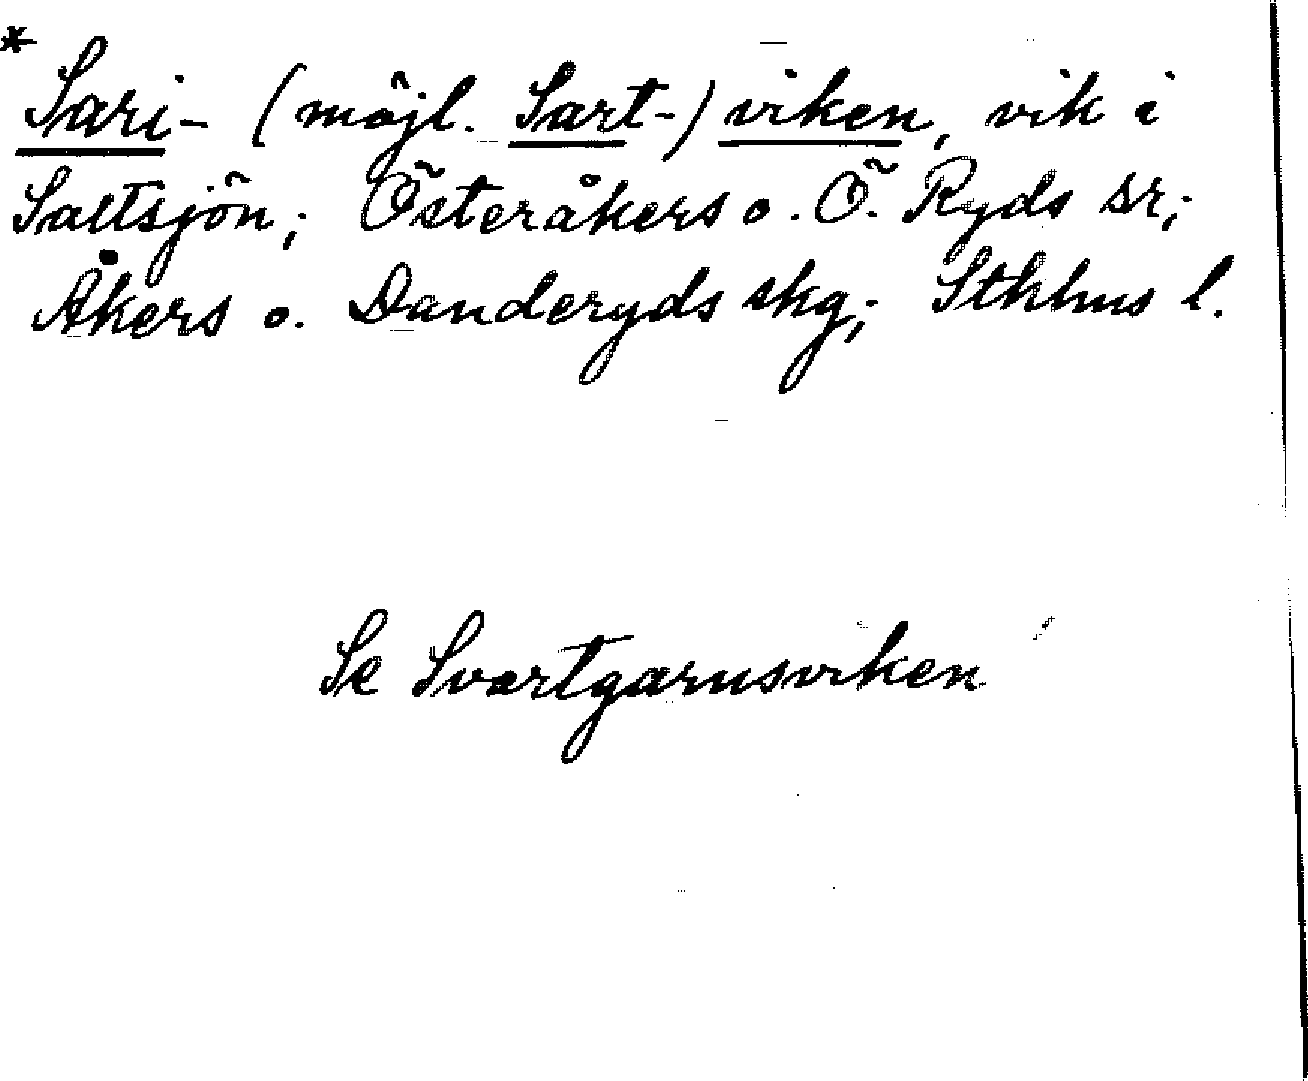 * Sari- (möjl. Sart-) viken, vik i
Saltsjön; Österåkers o. Ö. Ryds sr;
Åkers o. Danderyds skg; Sthlms l.
Se Svartgarnsviken